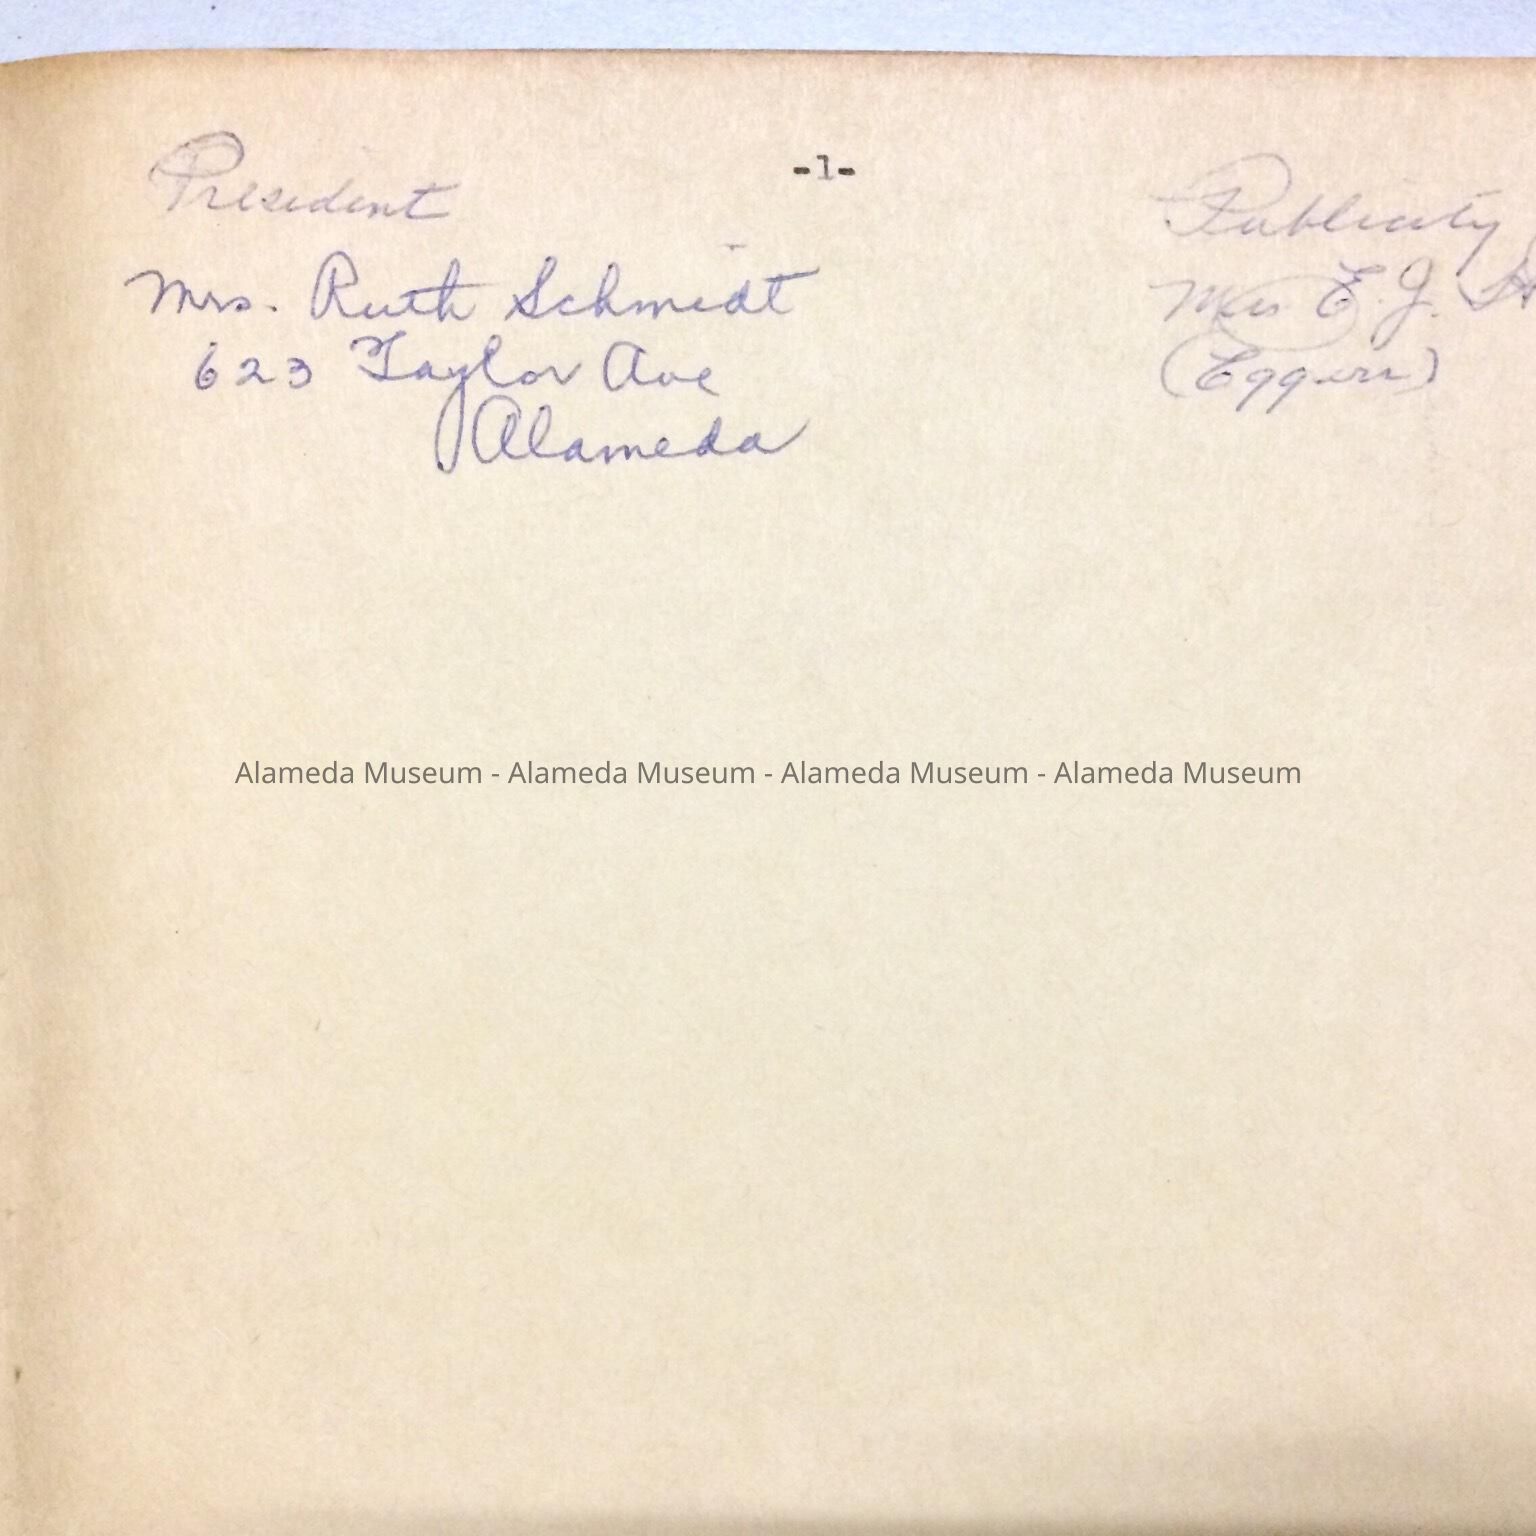 -1-
President
Mrs. Ruth Schmidt
623 Taylor Ave
Alameda
Publicity
Mrs E. J.
(Eggers)
Alameda Museum - Alameda Museum - Alameda Museum - Alameda Museum